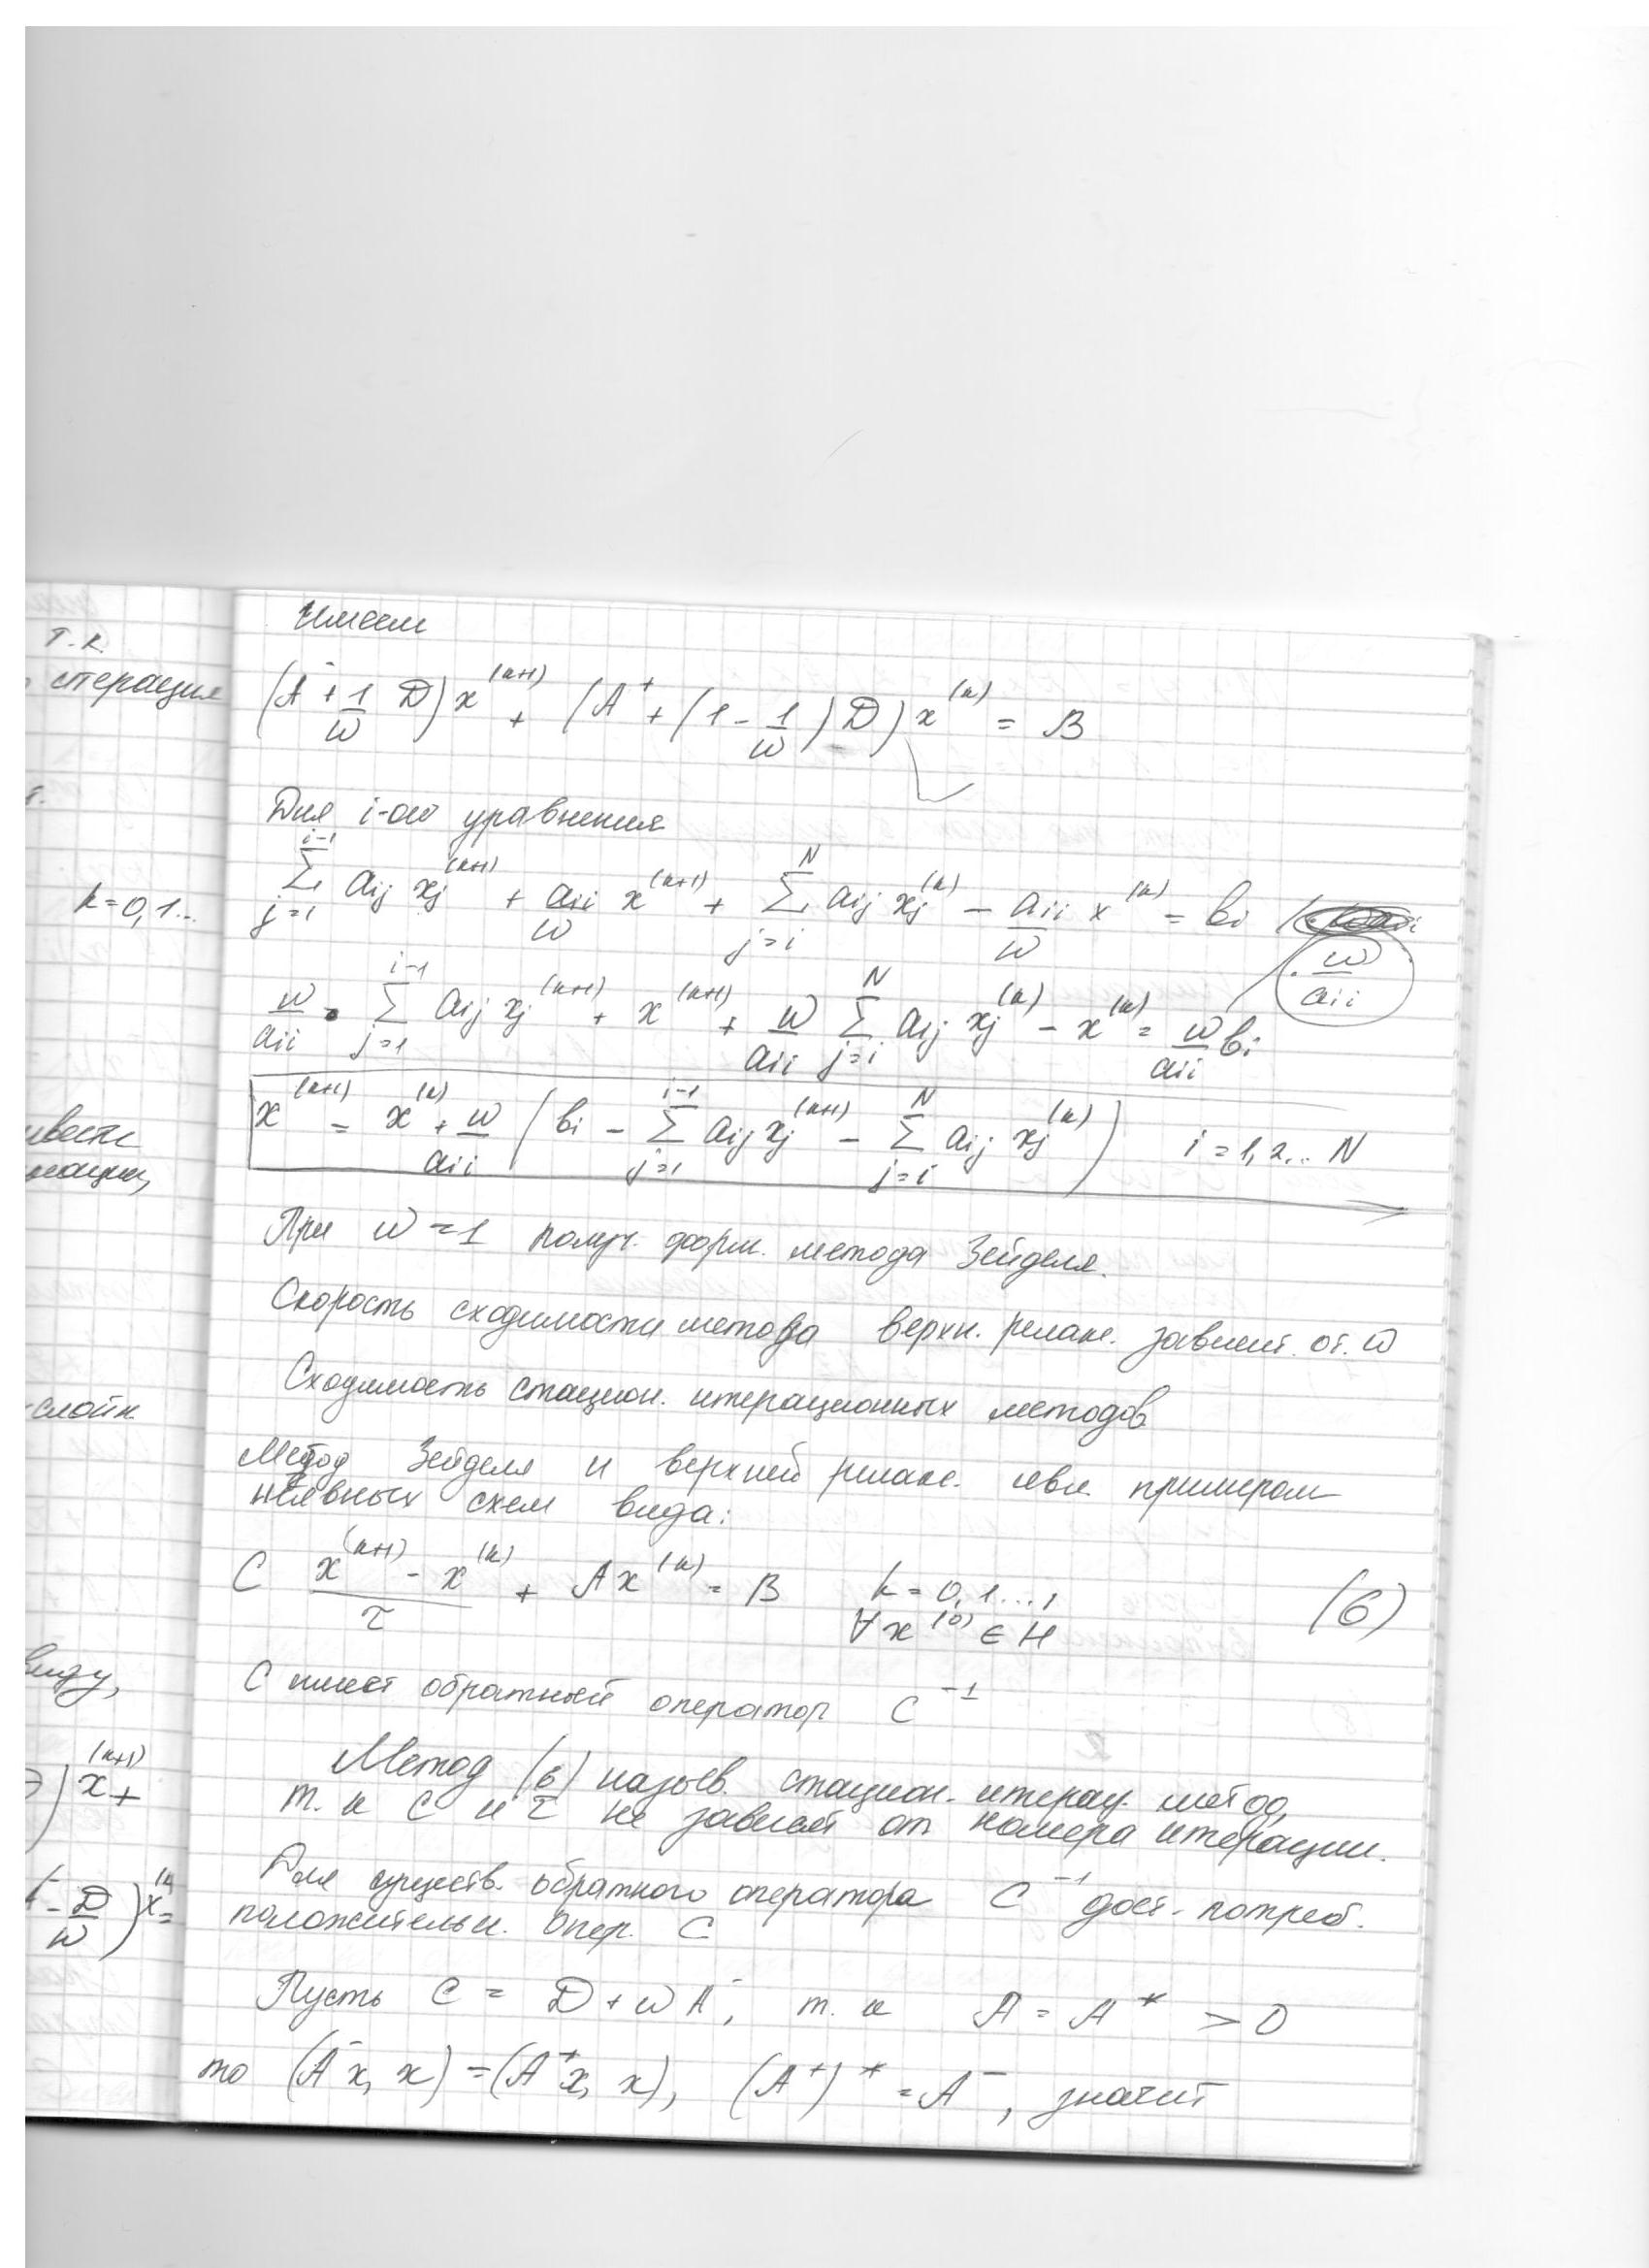 Имеем
(A⁻ + 1/ω D) x^(k+1) + (A⁺ + (1 - 1/ω) D) x^(k) = B
Для i-ого уравнения
∑_{j=1}^{i-1} aij xj^(k+1) + aii/ω x^(k+1) + ∑_{j=i}^{N} aij xj^(k) - aii/ω x^(k) = bi | · ω/aii
ω/aii · ∑_{j=1}^{i-1} aij xj^(k+1) + x^(k+1) + ω/aii ∑_{j=i}^{N} aij xj^(k) - x^(k) = ω/aii bi
x^(k+1) = x^(k) + ω/aii (bi - ∑_{j=1}^{i-1} aij xj^(k+1) - ∑_{j=i}^{N} aij xj^(k)) i = 1, 2.. N
При ω = 1 получ. форм. метода Зейделя.
Скорость сходимости метода верхн. релакс. зависит. от. ω
Сходимость стацион. итерационных методов
Метод Зейделя и верхней релакс. явл. примером
неявных схем вида:
C (x^(k+1) - x^(k))/τ + Ax^(k) = B k = 0, 1...,
∀ x^(0) ∈ H (6)
C имеет обратный оператор C^-1
Метод (6) назыв. стацион. итерац. метод,
т. к C и τ не зависят от номера итерации.
Для существ. обратного оператора C^-1 дост. потреб.
положительн. опер. C
Пусть C = D + ωA⁻, т. к A = A* > 0
то (A⁻x, x) = (A⁺x, x), (A⁺)* = A⁻, значит
т. к.
k = 0, 1...
виду,
) x^(k+1) +
- D/ω) x^(k) =